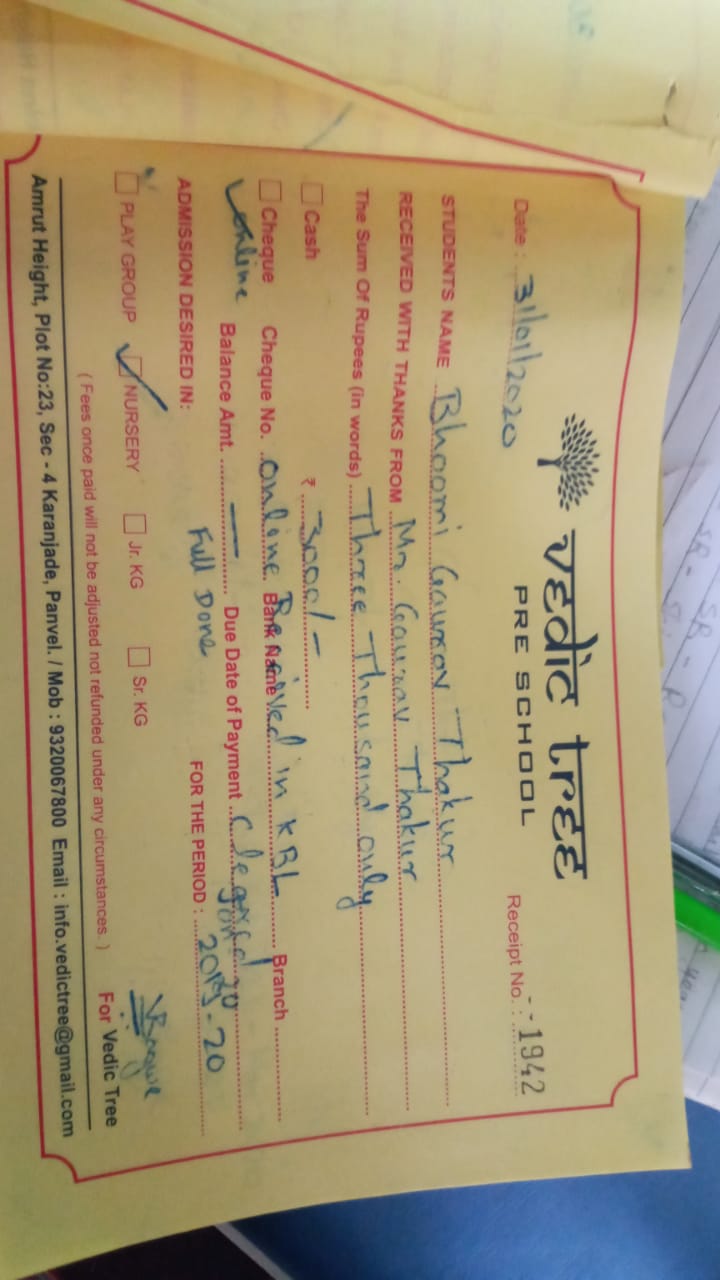 vedic tree
PRE SCHOOL
Receipt No. : 1942
Date : 31/01/2020
STUDENTS NAME Bhoomi Gaurav Thakur
RECEIVED WITH THANKS FROM Mr. Gaurav Thakur
The Sum Of Rupees (in words) Three Thousand only
Cash ₹ 3000/-
Cheque Cheque No. online Received in KBL Bank Name Branch
online Balance Amt. — Due Date of Payment cleared
Full Done
ADMISSION DESIRED IN: FOR THE PERIOD : 2019-20
PLAY GROUP NURSERY Jr. KG Sr. KG
( Fees once paid will not be adjusted not refunded under any circumstances. )
For Vedic Tree
Amrut Height, Plot No:23, Sec - 4 Karanjade, Panvel. / Mob : 9320067800 Email : info.vedictree@gmail.com